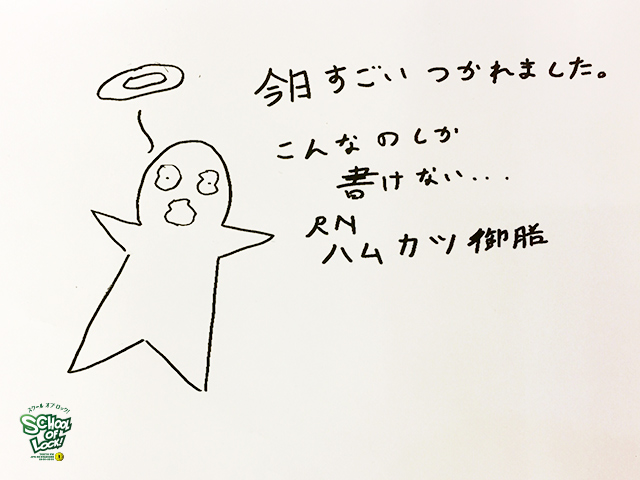 今日すごいつかれました。
こんなのしか
書けない...
RN
ハムカツ御膳
スクール オブ ロック!
SCHOOL
OF
LOCK!